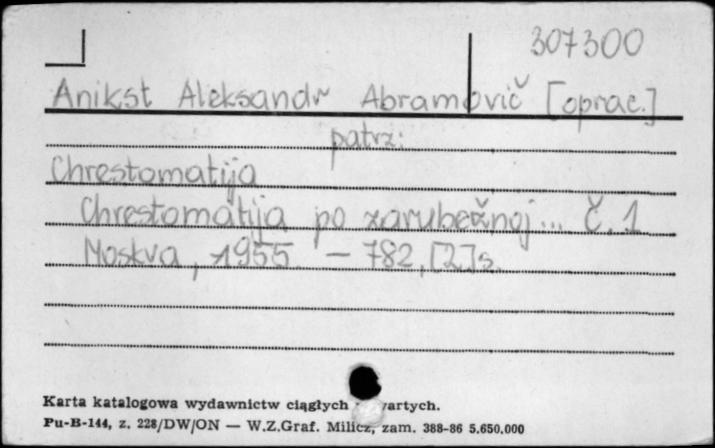 307300
Anikst Aleksandr Abramovič [oprac.]
patrz:
Chrestomatija
Chrestomatija po zarubežnoj... č. 1
Moskva, 1955 — 782, [2] s.
Karta katalogowa wydawnictw ciągłych
Pu-B-144, z. 228/DW/ON — W.Z.Graf. Milicz, zam. 388-86 5.650.000